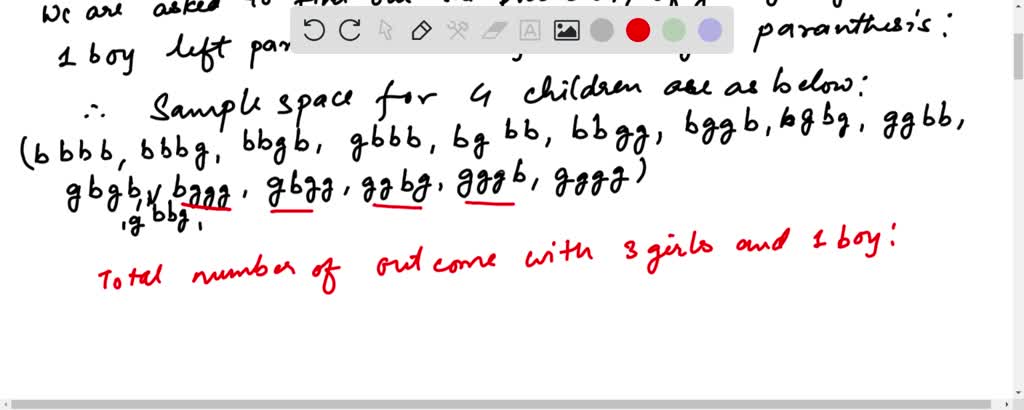 We are asked to find out
1 boy left par paranthesis:
∴ Sample space for 4 children are as below:
(bbbb, bbbg, bbgb, gbbb, bgbb, bbgg, bggb, bgbg, ggbb,
gbgb, bggg, gbgg, ggbg, gggb, gggg)
, gbbg,
Total number of outcome with 3 girls and 1 boy: